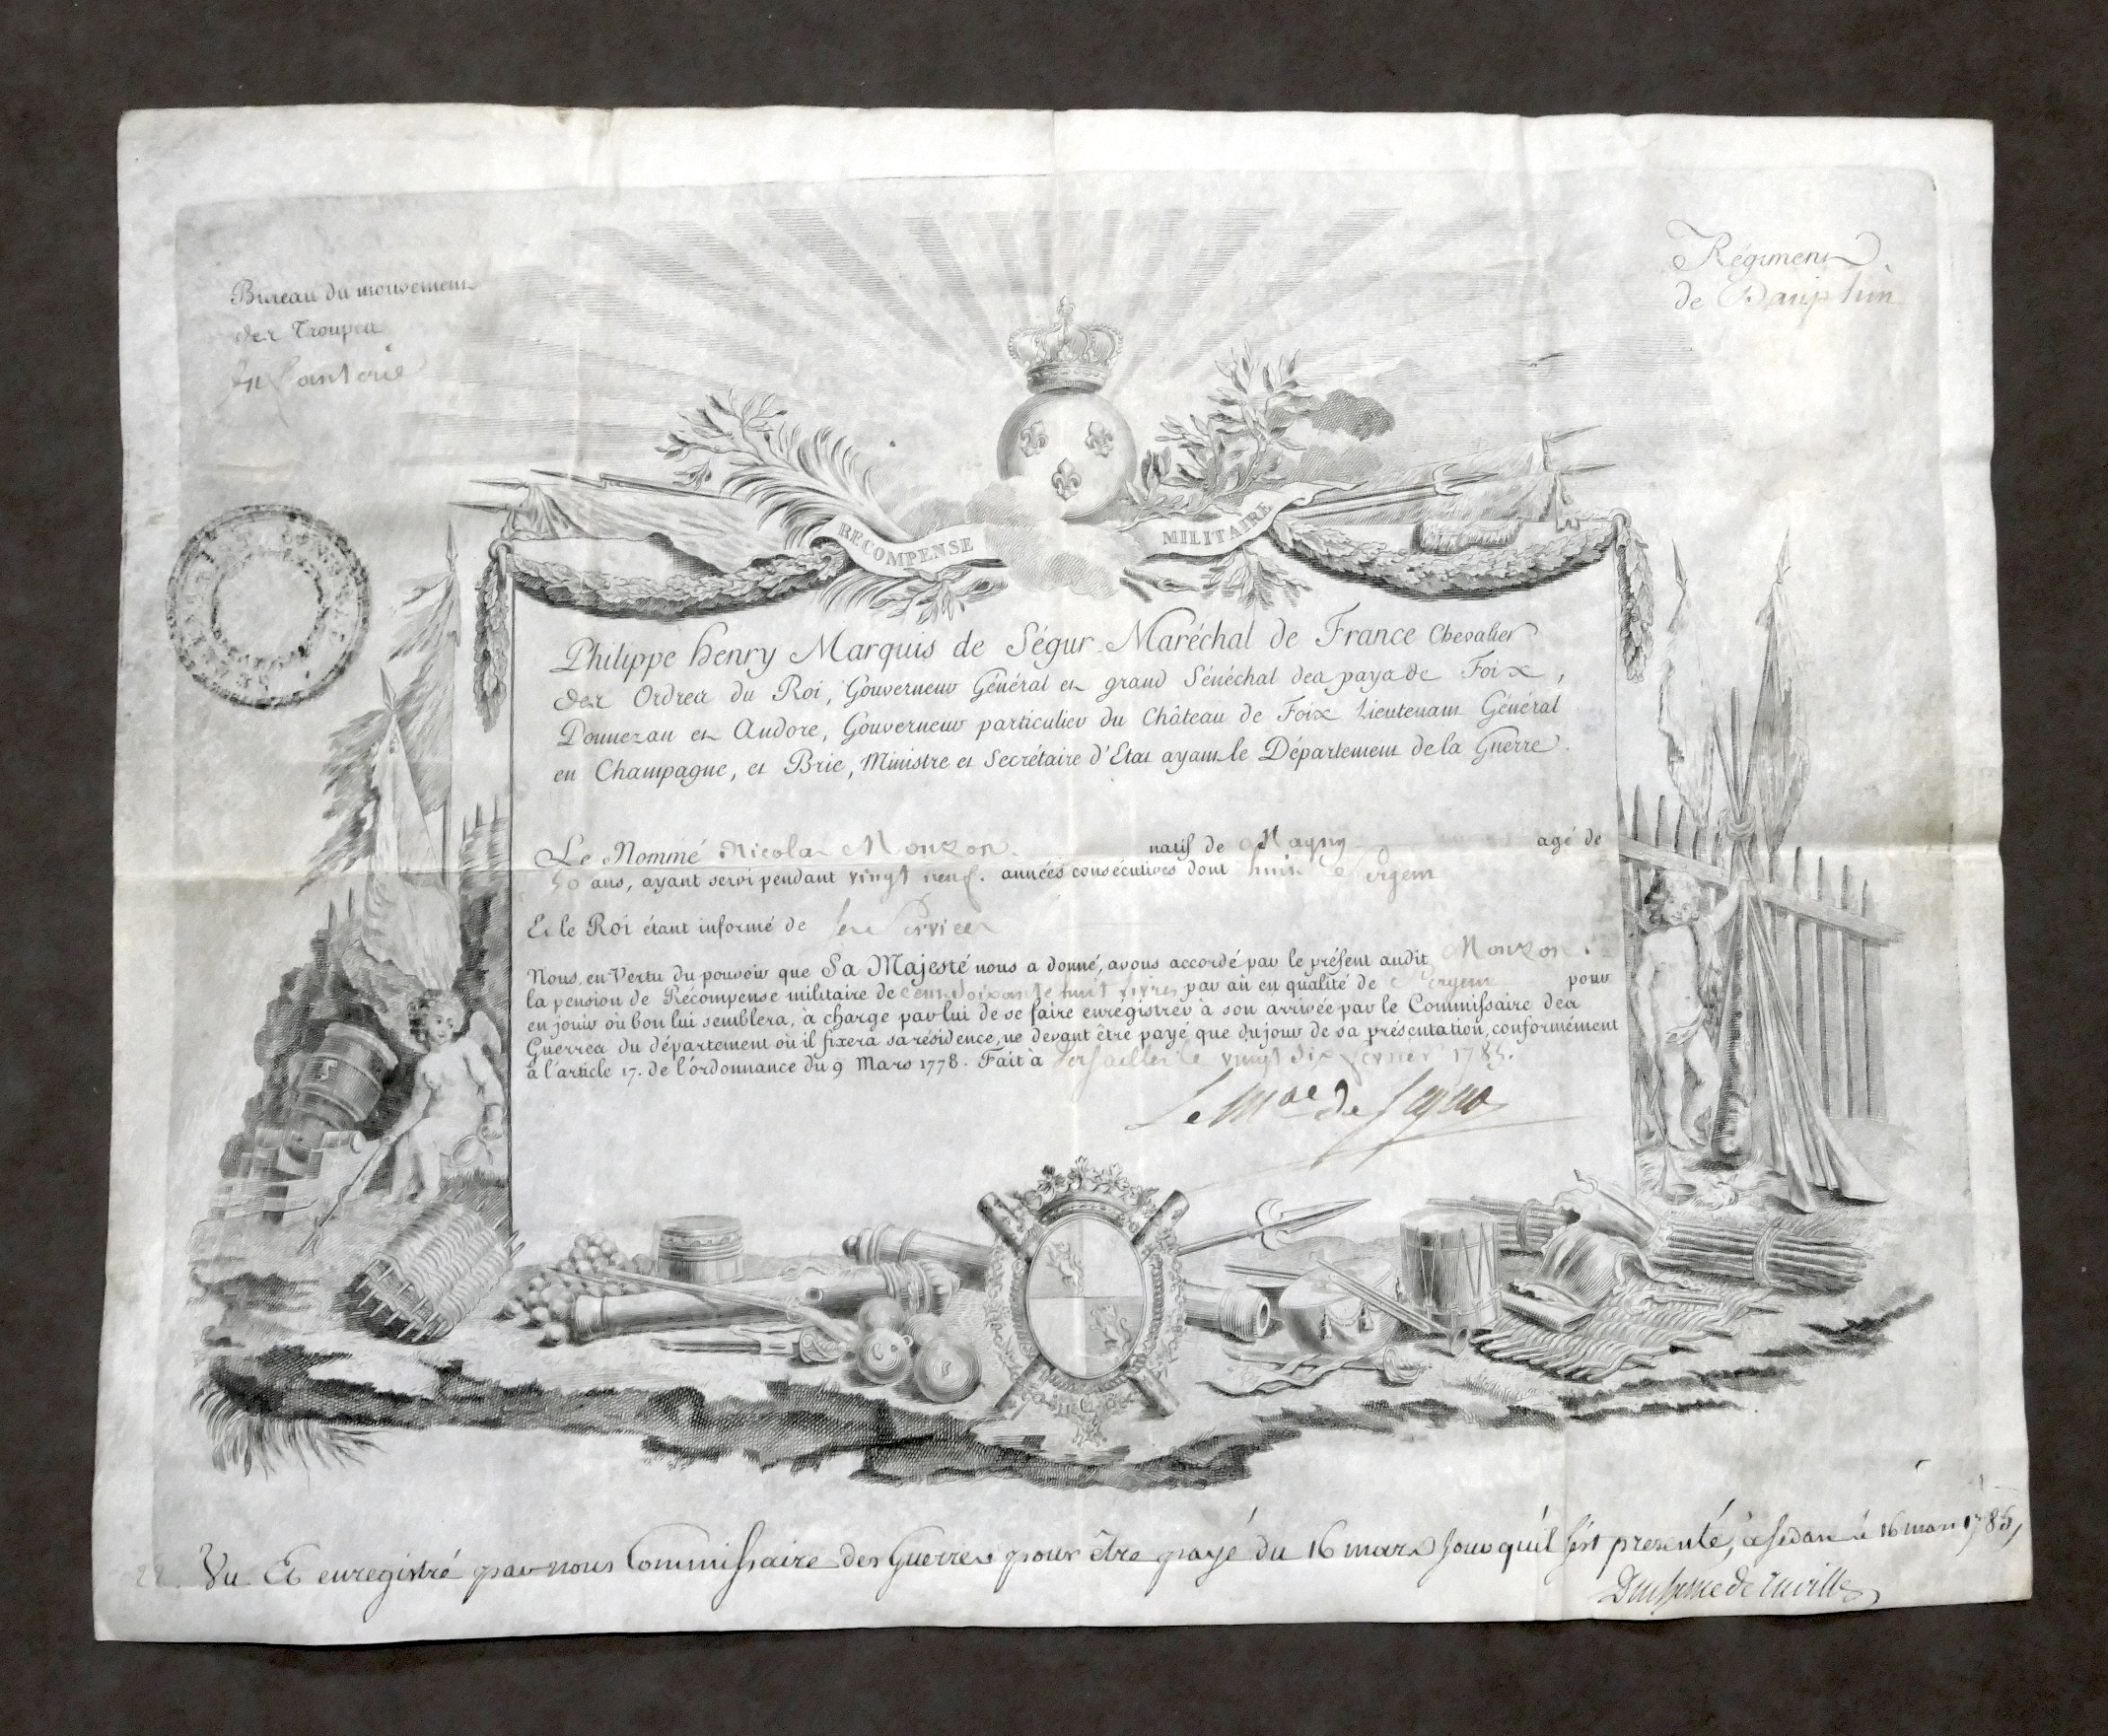 Bureau du mouvement
des Troupes
Infanterie
Régiment
de Dauphin
RECOMPENSE MILITAIRE
Philippe henry Marquis de Ségur Maréchal de France Chevalier
des Ordres du Roi, Gouverneur Général et grand Sénéchal des pays de Foix,
Donnezan et Andore, Gouverneur particulier du Château de Foix Lieutenant Général
en Champagne, et Brie, Ministre et Secrétaire d'Etat ayant le Département de la Guerre.
Le Nommé Nicolas Mouzon natif de Magny agé de
50 ans, ayant servi pendant vingt neuf. années consécutives dont huit Sergent
Et le Roi étant informé de ses Services
Nous, en Vertu du pouvoir que Sa Majesté nous a donné, avons accordé par le présent audit Mouzon
la pension de Récompense militaire de cent soixante huit livres par an en qualité de Sergent pour
en jouir où bon lui semblera, à charge par lui de se faire enregistrer à son arrivée par le Commissaire des
Guerres du département où il fixera sa résidence, ne devant être payé que du jour de sa présentation, conformément
à l'article 17. de l'ordonnance du 9 Mars 1778. Fait à Versailles le vingt six fevrier 1785.
Le Mal de Segur
Vu Et enregistré par nous Commissaire des Guerres pour être payé du 16 mars jour qu'il s'est presenté, à sedan le 16 mars 1785,